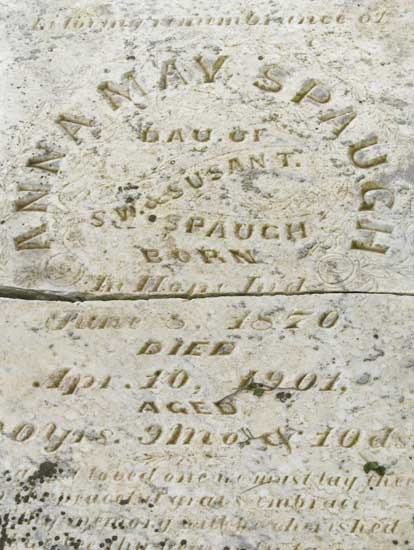 In loving remembrance of
ANNA MAY SPAUGH
DAU. OF
S. W. & SUSAN T.
SPAUGH
BORN
In Hope Ind.
June 8, 1870
DIED
Apr. 10, 1901,
AGED
Yrs. 9 Mo. & 10 ds.
loved one we must lay thee
peaceful graves embrace
memory will be cherished